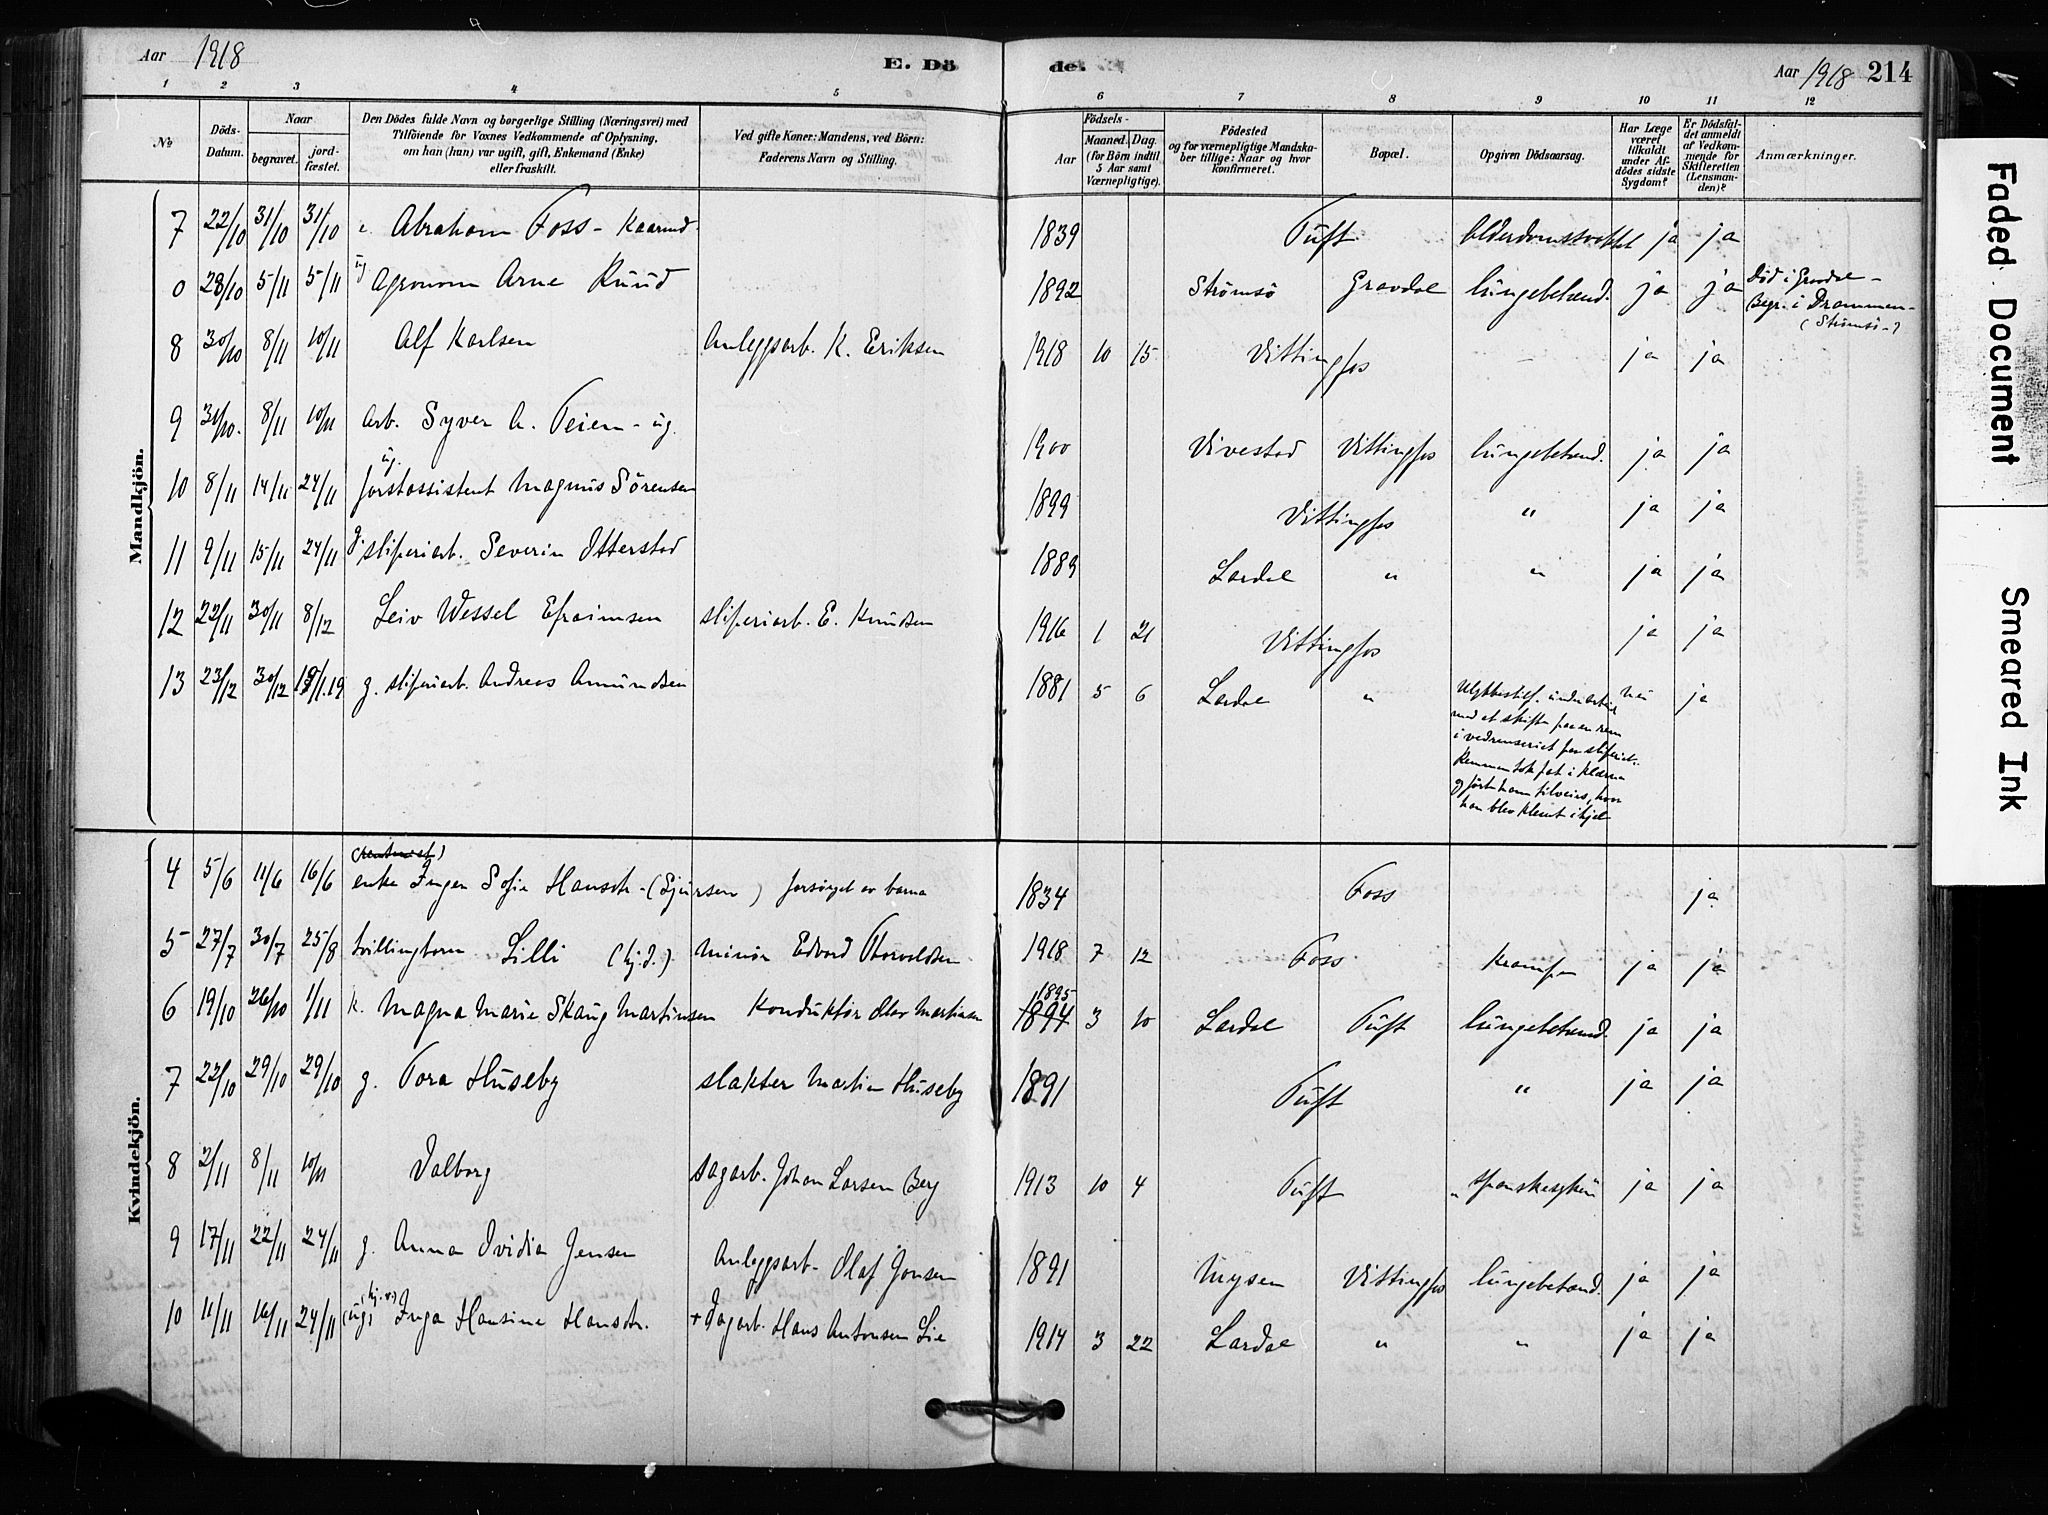 Aar 1918
E. Dö
de.
Aar 1918 214
1 2 3 4 5 6 7 8 9 10 11 12
No
Döds-Datum.
Naar
begravet.
jord-fæstet.
Den Dödes fulde Navn og borgerlige Stilling (Næringsvei) med
Tilföiende for Voxnes Vedkommende af Oplysning,
om han (hun) var ugift, gift, Enkemand (Enke)
eller fraskilt.
Ved gifte Koner: Mandens, ved Börn:
Faderens Navn og Stilling.
Födsels-
Aar
Maaned.
Dag.
(for Börn indtil
5 Aar samt
Værnepligtige).
Födested
og for værnepligtige Mandska-
ber tillige: Naar og hvor
konfirmeret.
Bopæl.
Opgiven Dödsaarsag.
Har Læge
været
tilkaldt
under Af-
dödes sidste
Sygdom?
Er Dödsfal-
det anmeldt
af Vedkom-
mende for
Skifteretten
(Lensman-
den)?
Anmærkninger.
Mandkjön.
7 22/10 31/10 31/10 Abraham Foss - Kaarmd. 1839 Tuft. ja ja
0 28/10 5/11 5/11 ug Agronom Arne Ruud 1892 Strømsö Gravdal lungebetænd. ja ja Död i Gravdal -
Begr. i Drammen -
(Strømsö -)
8 30/10 8/11 10/11 Alf Karlsen Anleggsarb. K. Eriksen 1918 10 15 Vittingfos - ja ja
9 31/10. 8/11 10/11 Arb. Syver A. Teien - ug. 1900 Vivestad Vittingfos lungebetænd. ja ja
10 8/11 14/11 24/11 ug. forstassistent Magnus Sörensen 1899 Vittingfos " ja ja
11 9/11 15/11 24/11 g. sliperiarb. Severin Otterstad 1889 Lardal " " ja ja
12 22/11 30/11 8/12 Leiv Wessel Efraimsen sliperiarb. E. Knudsen 1916 1 21 Vittingfos ja ja
13 23/12 30/12 19/1.19 g. sliperiarb. Andreas Amundsen 1881 5 6 Lardal " Ulykkestilf. under arbeid nei ja
med at skifte paa en rem
i vedrenseriet paa sliperiet.
Remmen tok fat i klærne
og førte ham tilveirs, hvor
han blev klemt ihjel
Kvindekjön.
4 5/6 11/6 16/6 enke Inger Sofie Hansdtr. - (Gjursen) forsörget av barna 1834 Foss ja
5 27/7 30/7 25/8 tvillingbarn Lilli (hj.d.) Minør Edvard Thorvaldsen 1918 7 12 Foss. Krampe ja ja
6 19/10 26/10 1/11 k. Magna Marie Skaug Martinsen Konduktør Olav Martinsen 1895 1894 3 10 Lardal Tuft lungebetænd. ja ja
7 22/10 29/10 29/10 g. Tora Huseby slakter Martin Huseby 1891 Tuft " ja ja
8 2/11 8/11 10/11 Valborg sagarb. Johan Larsen Berg 1913 10 4 Tuft „spanskesyken ja ja
9 17/11 22/11 24/11 g. Anna Ovidia Jensen Anleggsarb. Olaf Jensen 1891 Mysen Vittingfos lungebetænd. ja ja
10 11/11 16/11 24/11 (ug) (hj.d.) Inga Hansine Hansdtr. + Dagarb. Hans Antonsen Lie 1914 3 22 Lardal " " ja ja
Faded Document
Smeared Ink